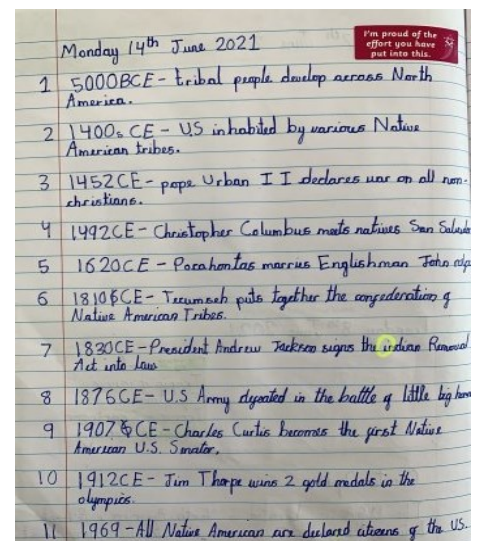 Monday 14th June 2021
I'm proud of the
effort you have
put into this.
1 5000BCE - tribal people develop across North
America.
2 1400s CE - US inhabited by various Native
American tribes.
3 1452CE - pope Urban II declares war on all non-
christians.
4 1492CE - Christopher Columbus meets natives San
5 1620CE - Pocahontas marrus Englishman John
6 1810 CE - Tecumseh puts together the confederation of
Native American Tribes.
7 1830CE - President Andrew Jackson signs the indian Removal
Act into law
8 1876CE - U.S Army defeated in the battle of little big
9 1907 CE - Charles Curtis becomes the first Native
American U.S. Senator.
10 1912CE - Jim Thorpe wins 2 gold medals in the
olympics.
11 1969 - All Native American are declared citizens of the US.